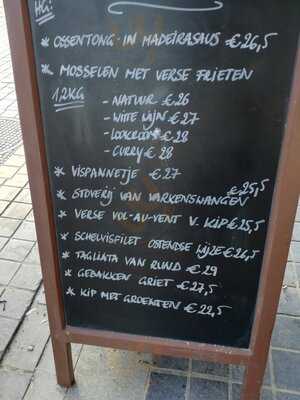 HG:
* OSSENTONG IN MADEIRASAUS €26,5
* MOSSELEN MET VERSE FRIETEN
1,2KG
- NATUUR €26
- WITTE WIJN €27
- LOOKROOM €28
- CURRY €28
* VISPANNETJE €27
* STOVERIJ VAN VARKENSWANGEN €25,5
* VERSE VOL-AU-VENT V. KIP €25,5
* SCHELVISFILET OSTENDSE WIJZE €26,5
* TAGLIATA VAN RUND €29
* GEBAKKEN GRIET €27,5
* KIP MET GROENTEN €22,5